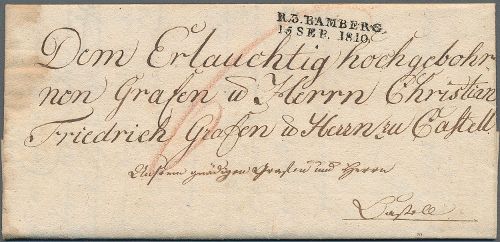 R.3. BAMBERG.
15 SEP. 1810.
Dem Erlauchtig hochgebohr
nen Grafen u Herrn Christian
Friedrich Grafen u Herrn zu Castell
Unserm gnädigen Grafen und Herrn
Castell